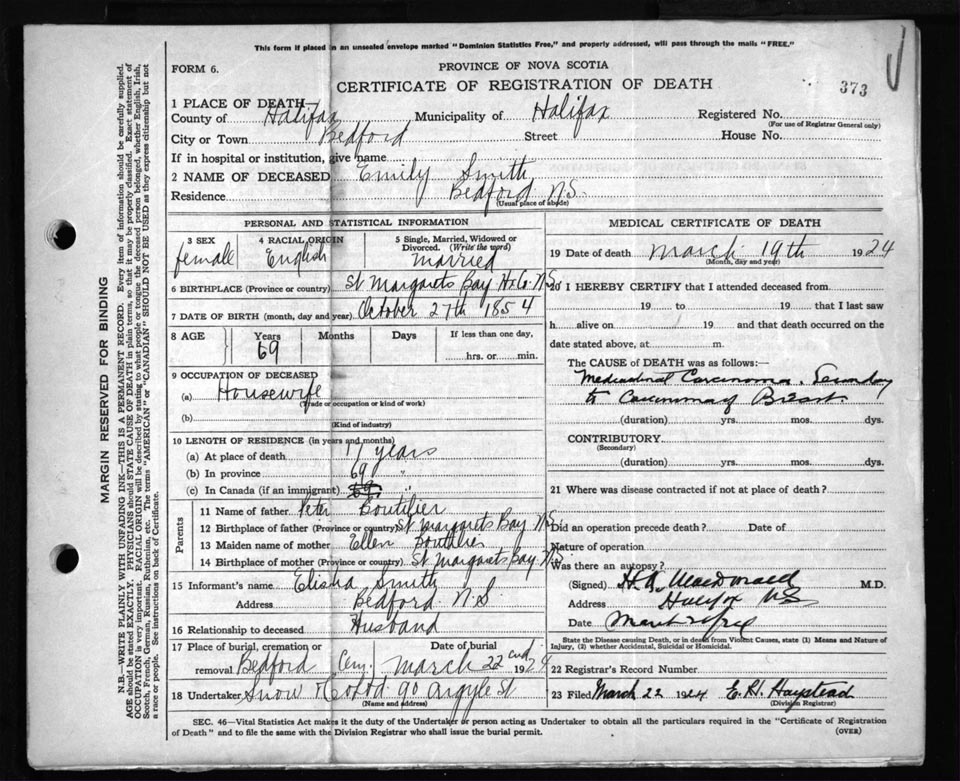 This form if placed in an unsealed envelope marked "Dominion Statistics Free," and properly addressed, will pass through the mails "FREE."
FORM 6.
PROVINCE OF NOVA SCOTIA
CERTIFICATE OF REGISTRATION OF DEATH
373
1 PLACE OF DEATH—
County of Halifax Municipality of Halifax Registered No.
(For use of Registrar General only)
City or Town Bedford Street House No.
If in hospital or institution, give name
2 NAME OF DECEASED Emily Smith
Residence Bedford N.S.
(Usual place of abode)
PERSONAL AND STATISTICAL INFORMATION
3 SEX female
4 RACIAL ORIGIN English
5 Single, Married, Widowed or Divorced. (Write the word) married
6 BIRTHPLACE (Province or country) St Margarets Bay Hx Co. N.S.
7 DATE OF BIRTH (month, day and year) October 27th 1854
8 AGE Years Months Days If less than one day,
69 hrs. or min.
9 OCCUPATION OF DECEASED
(a) Housewife
(Trade or occupation or kind of work)
(b)
(Kind of industry)
10 LENGTH OF RESIDENCE (in years and months)
(a) At place of death 17 years
(b) In province 69 "
(c) In Canada (if an immigrant)
Parents
11 Name of father Peter Boutilier
12 Birthplace of father (Province or country) St Margarets Bay N.S.
13 Maiden name of mother Ellen
14 Birthplace of mother (Province or country) St Margarets Bay N.S.
15 Informant's name Elisha Smith
Address Bedford N.S.
16 Relationship to deceased Husband
17 Place of burial, cremation or removal Bedford Cem. Date of burial March 22nd 1924
18 Undertaker Snow & Co 90 Argyle St
(Name and address)
MEDICAL CERTIFICATE OF DEATH
19 Date of death march 19th 1924
(Month, day and year)
20 I HEREBY CERTIFY that I attended deceased from
19 to 19 that I last saw
h alive on 19 and that death occurred on the
date stated above, at m.
The CAUSE of DEATH was as follows:—
Mediastinal Carcinoma. Secondary
to Carcinoma of Breast.
(duration) yrs. mos. dys.
CONTRIBUTORY
(Secondary)
(duration) yrs. mos. dys.
21 Where was disease contracted if not at place of death?
Did an operation precede death? Date of
Nature of operation
Was there an autopsy?
(Signed) Macdonald M.D.
Address Halifax NS
Date
State the Disease causing Death, or in death from Violent Causes, state (1) Means and Nature of
Injury, (2) whether Accidental, Suicidal or Homicidal.
22 Registrar's Record Number
23 Filed March 22 1924 E. H. Haystead
(Division Registrar)
SEC. 46—Vital Statistics Act makes it the duty of the Undertaker or person acting as Undertaker to obtain all the particulars required in the "Certificate of Registration
of Death" and to file the same with the Division Registrar who shall issue the burial permit.
(OVER)
MARGIN RESERVED FOR BINDING
N.B.—WRITE PLAINLY WITH UNFADING INK—THIS IS A PERMANENT RECORD. Every item of information should be carefully supplied.
AGE should be stated EXACTLY. PHYSICIANS should STATE CAUSE OF DEATH in plain terms, so that it may be properly classified. Exact statement of
OCCUPATION is very important. RACIAL ORIGIN will be described by stating to what people or tongue the deceased person belonged, whether English, Irish,
Scotch, French, German, Russian, Ruthenian, etc. The terms "AMERICAN" or "CANADIAN" SHOULD NOT BE USED as they express citizenship but not
a race or people. See instructions on back of Certificate.